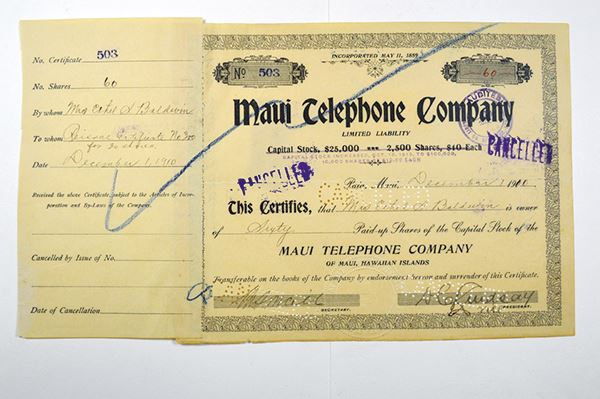 No. Certificate 503
No. Shares 60
By whom Mrs Ethel S Baldwin
To whom
for 20 shares
Date December 1, 1910
Received the above Certificate, subject to the Articles of Incor-
poration and By-Laws of the Company.
Cancelled by Issue of No.
Date of Cancellation
INCORPORATED MAY 11, 1889
No 503
60
Maui Telephone Company
LIMITED LIABILITY
AUDITED
Capital Stock, $25,000 2,500 Shares, $10 Each
CANCELLED
CAPITAL STOCK INCREASED, OCT. 1910, TO $100,000,
10,000 SHARES $10.00 EACH
CANCELLED
Paia, Maui, December 1 1910
This Certifies, that Mrs Ethel S Baldwin is owner
of Sixty Paid-up Shares of the Capital Stock of the
MAUI TELEPHONE COMPANY
OF MAUI, HAWAIIAN ISLANDS
Transferable on the books of the Company by endorsement hereon and surrender of this Certificate.
D C Lindsay
SECRETARY.
PRESIDENT.